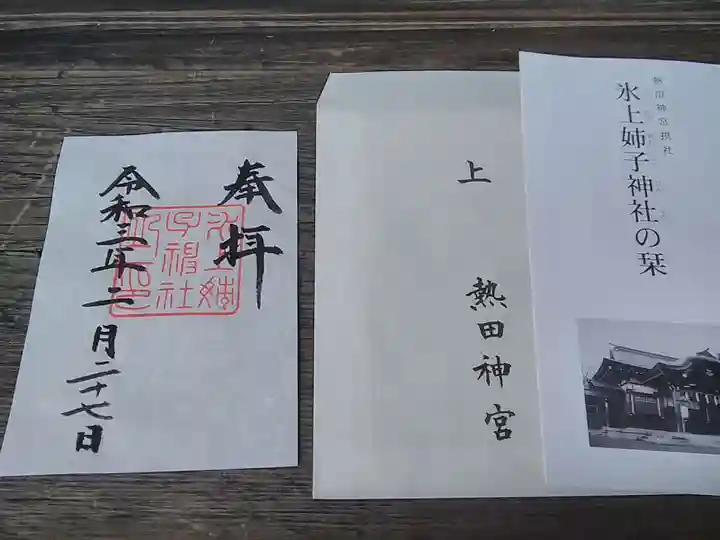 熱田神宮摂社
氷上姉子神社の栞
上
熱田神宮
奉拝
氷上姉
子神社
令和三年二月二十七日